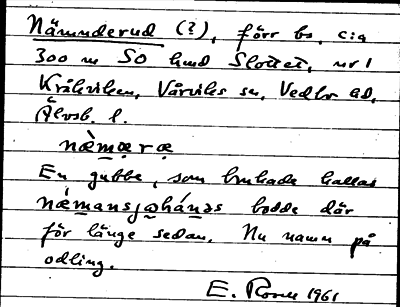 Nämnderud (?), förr bs, c:a
300 m SO hmd Slottet, nr 1
Kråkviken, Vårviks sn, Vedbo hd,
Älvsb. l.
næ̀mæræ
En gubbe, som brukade kallas
nǽmansjohánəs bodde där
för länge sedan. Nu namn på
odling.
E. 1961